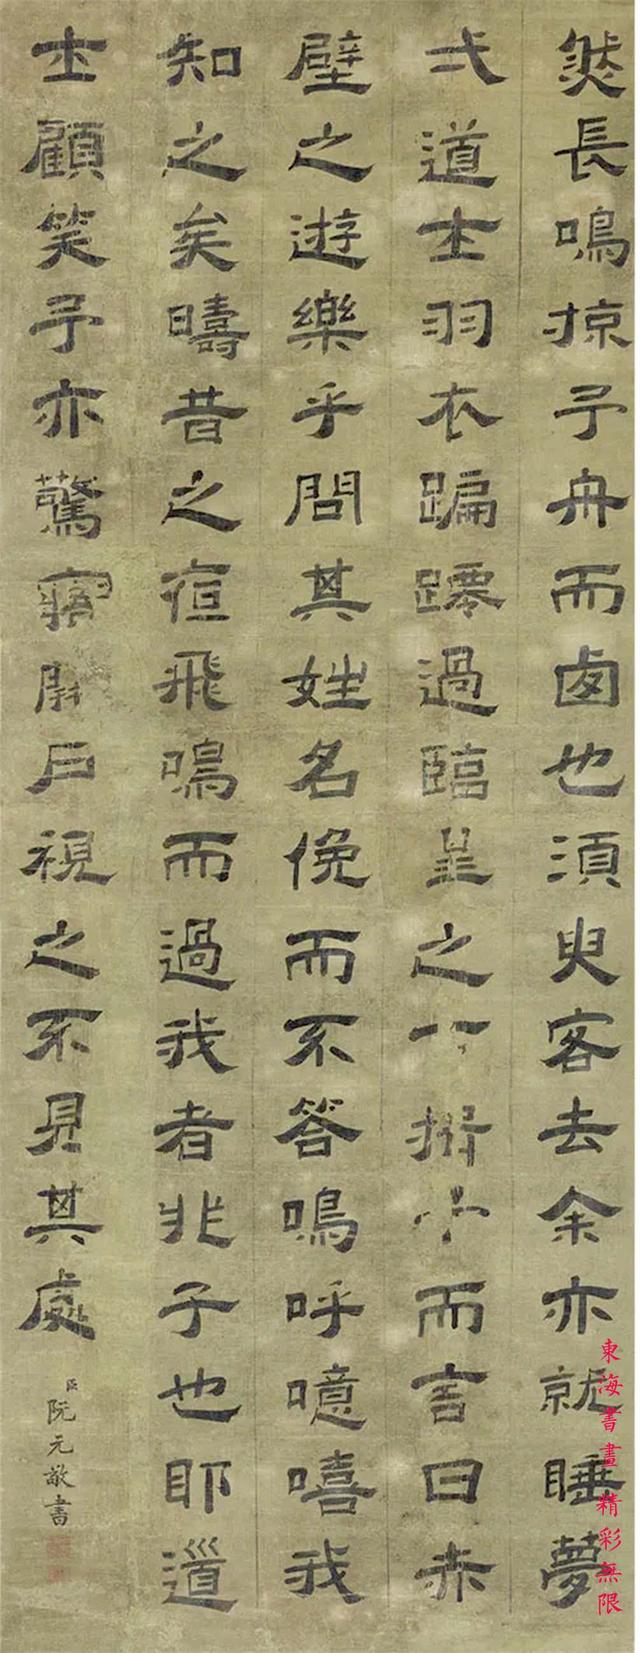 然長鳴掠予舟而西也須臾客去余亦就睡夢
弌道士羽衣蹁躚過臨皋之下揖予而言曰赤
壁之遊樂乎問其姓名俛而不答嗚呼噫嘻我
知之矣疇昔之夜飛鳴而過我者非子也耶道
士顧笑予亦驚寤開戶視之不見其處
臣阮元敬書
東海書畫精彩無限